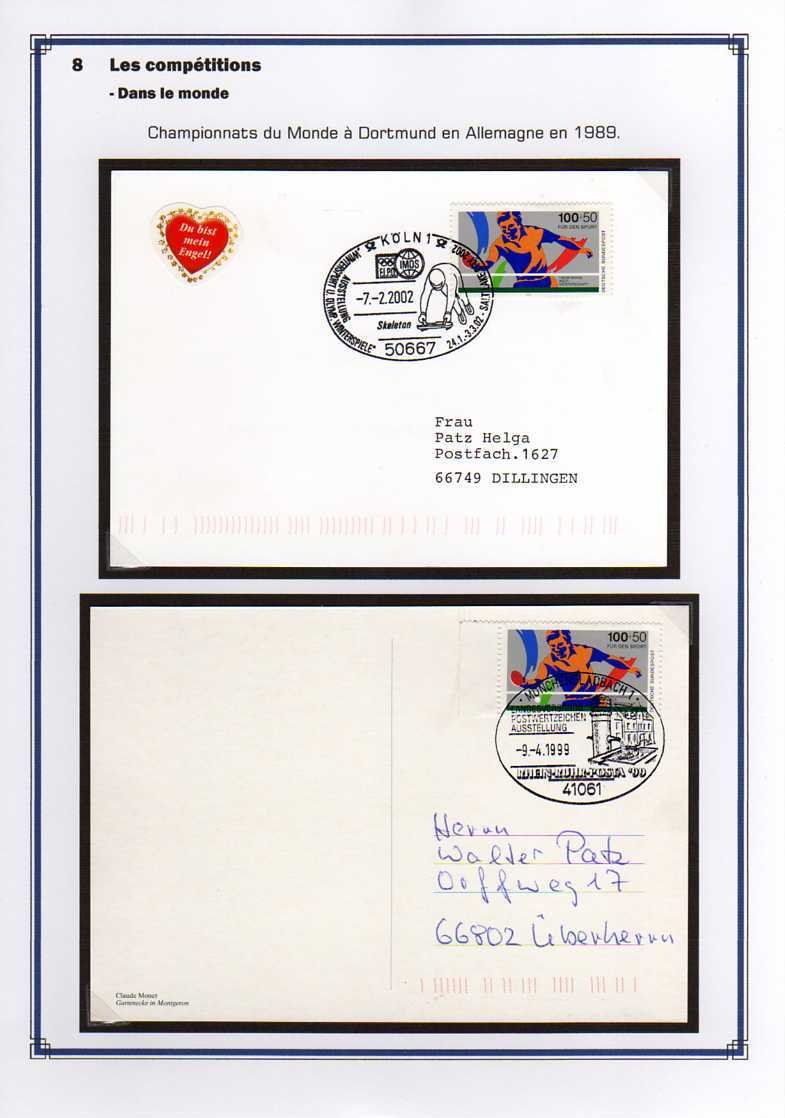 8 Les compétitions
- Dans le monde
Championnats du Monde à Dortmund en Allemagne en 1989.
Du bist
mein
Engel!
100+50
FÜR DEN SPORT
DEUTSCHE BUNDESPOST
KÖLN 1
IMOS
-7.-2.2002
Skeleton
50667
AUSSTELLUNG
"WINTERSPORT U. OLYMP. WINTERSPIELE"
24.1.-3.3.02 - SALT LAKE 2002
Frau
Patz Helga
Postfach.1627
66749 DILLINGEN
100+50
FÜR DEN SPORT
DEUTSCHE BUNDESPOST
MÖNCHENGLADBACH 1
POSTWERTZEICHEN
AUSSTELLUNG
-9.-4.1999
RHEIN-RUHR-POSTA '99
41061
Herrn
Walter Patz
Orffweg 17
66802 Überherrn
Claude Monet
Gartenecke in Montgeron